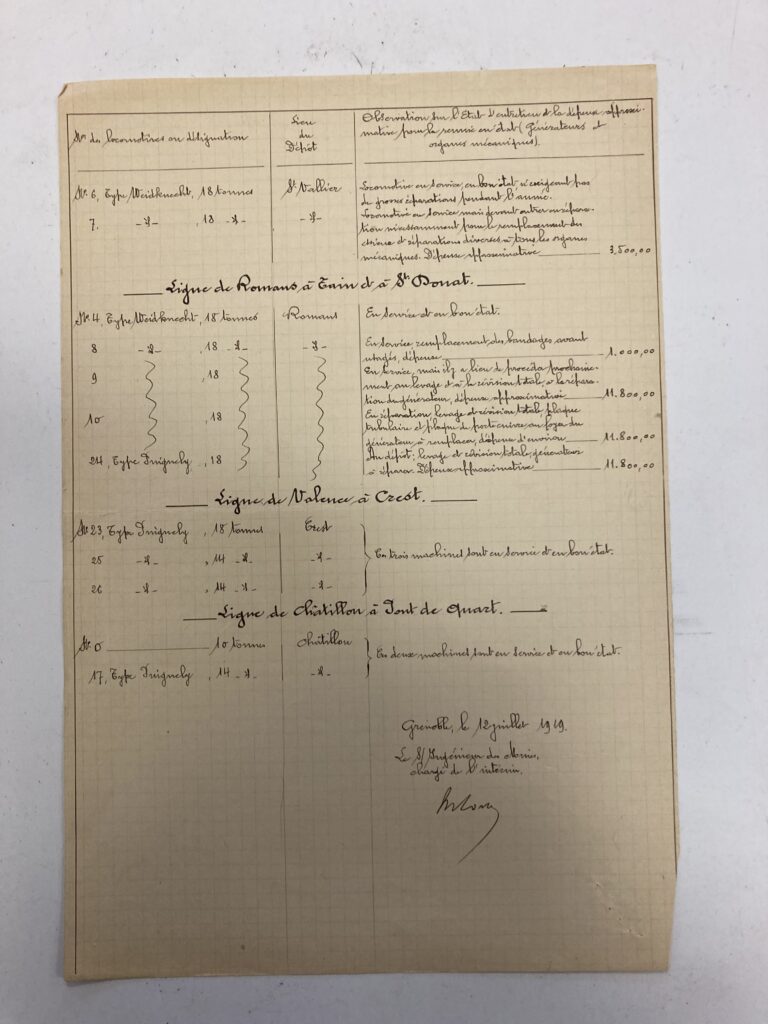 Nos des locomotives ou désignation
Lieu
du
Dépôt
Observation sur l'Etat d'entretien et la dépense approxi-
mative pour la remise en état (Générateurs et
organes mécaniques).
No 6, Type Weidknecht, 18 tonnes St Vallier Locomotive en service, en bon état n'exigeant pas
de grosses réparations pendant l'année.
7. -d- , 18 -d- -d- Locomotive en service mais devant entrer en répara-
tion incessamment pour le remplacement des
essieux et réparations diverses à tous les organes
mécaniques. Dépense approximative 3,500,00
Ligne de Romans à Tain et à St Donat.
No 4, Type Weidknecht, 18 tonnes Romans En service et en bon état.
8 -d- , 18 -d- -d- En service, remplacement des bandages avant
usagés, dépense 1.000,00
9 , 18 En service, mais il y a lieu de procéder prochaine-
ment au levage et à la révision totale, à la répara-
tion du générateur, dépense approximative 11.800,00
10 , 18 En réparation, levage et révision totale, plaque
tubulaire et plaque de porte cuivre au foyer du
générateur à remplacer, dépense d'environ 11.800,00
24, Type Pinguely , 18 Au dépôt; levage et révision totale, générateur
à réparer. Dépense approximative 11.800,00
Ligne de Valence à Crest.
No 23, Type Pinguely , 18 tonnes Crest
25 -d- , 14 -d- -d- Ces trois machines sont en service et en bon état.
26 -d- , 14 -d- -d-
Ligne de Châtillon à Pont de Quart.
No 0 10 tonnes Châtillon
Ces deux machines sont en service et en bon état.
17, Type Pinguely , 14 -d- -d-
Grenoble, le 12 juillet 1919.
Le S/Ingénieur des Mines,
chargé de l'intérim,